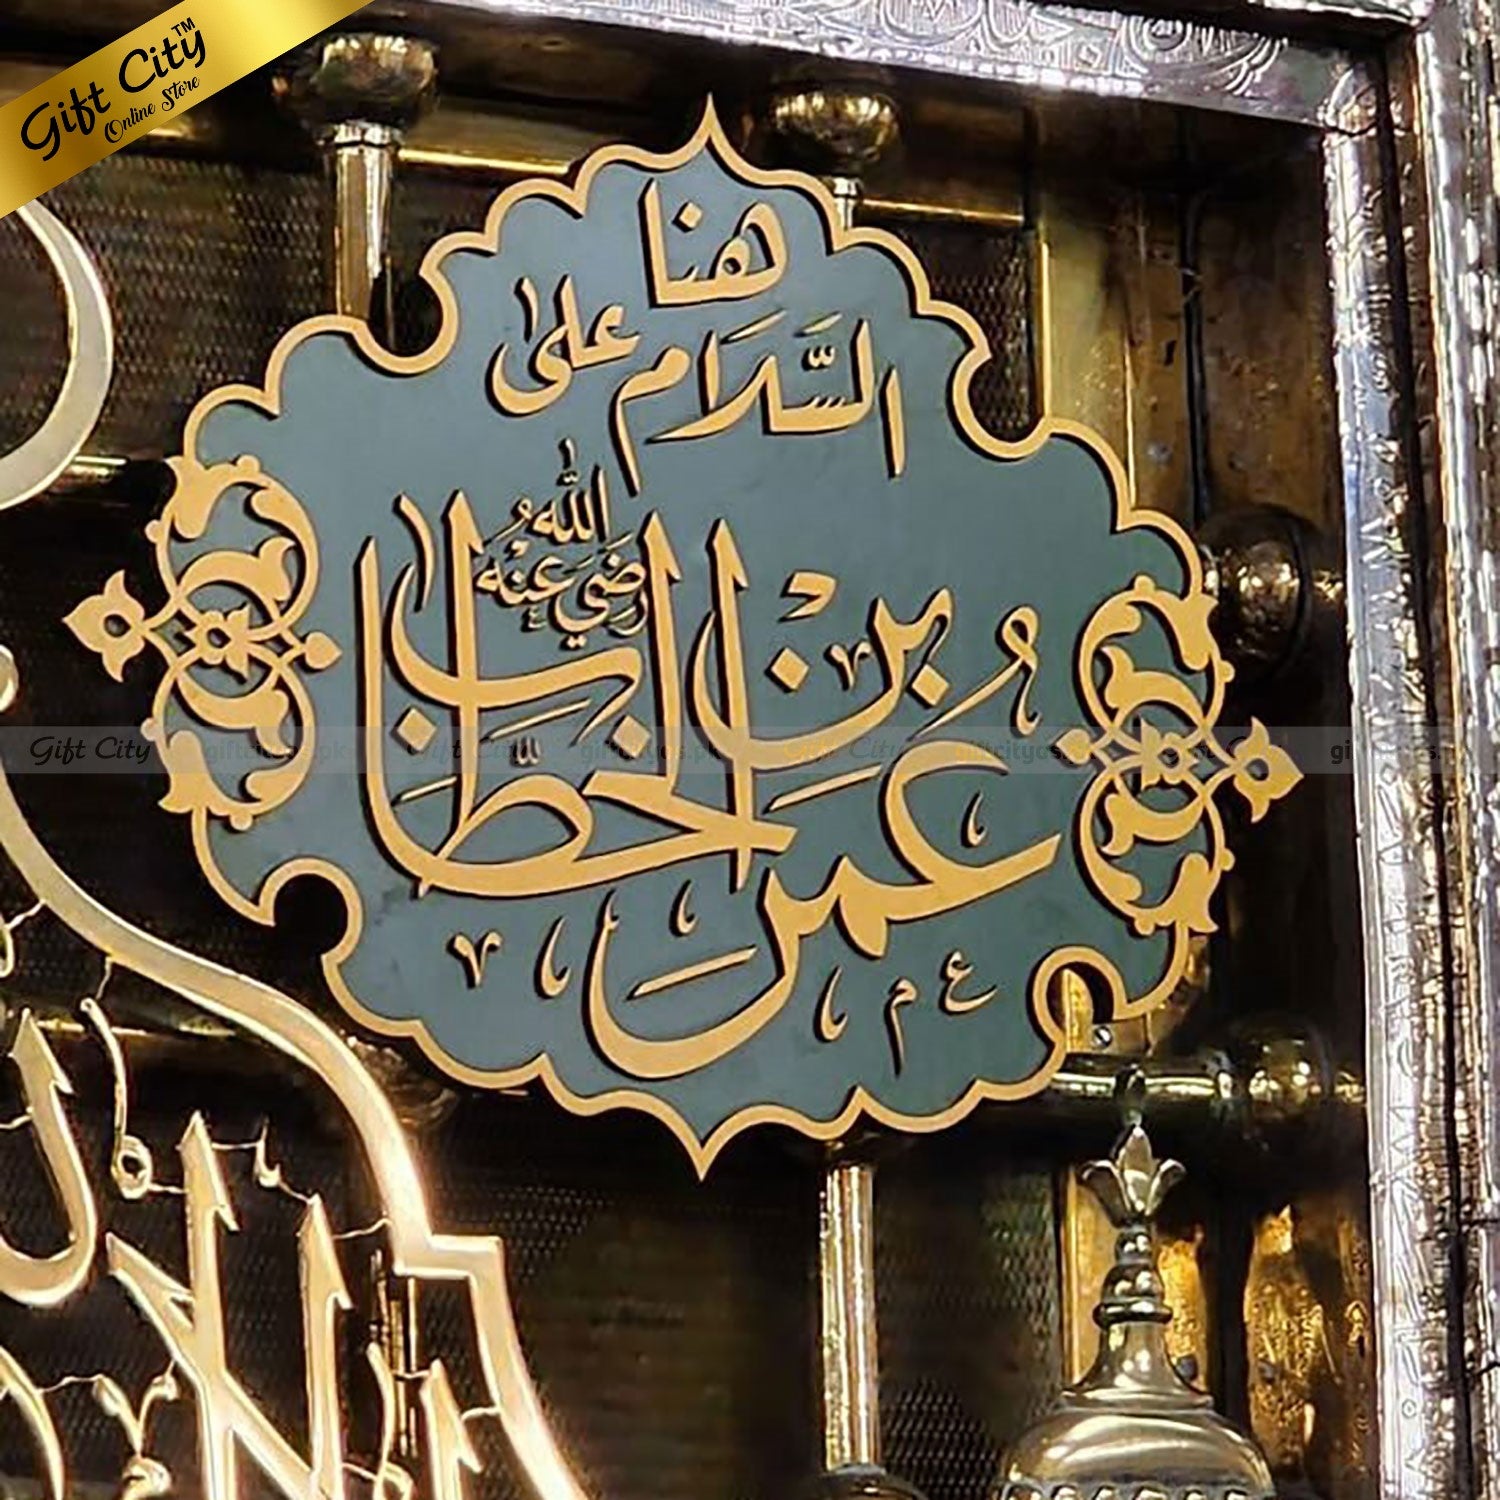 Gift City™
Online Store
هنا
السَّلَام على
عمر بن الخطاب
رَضِيَ اللَّهُ عَنْهُ
Gift City giftcityas.pk Gift City giftcityas.pk Gift City giftcityas.pk Gift City giftcityas.pk